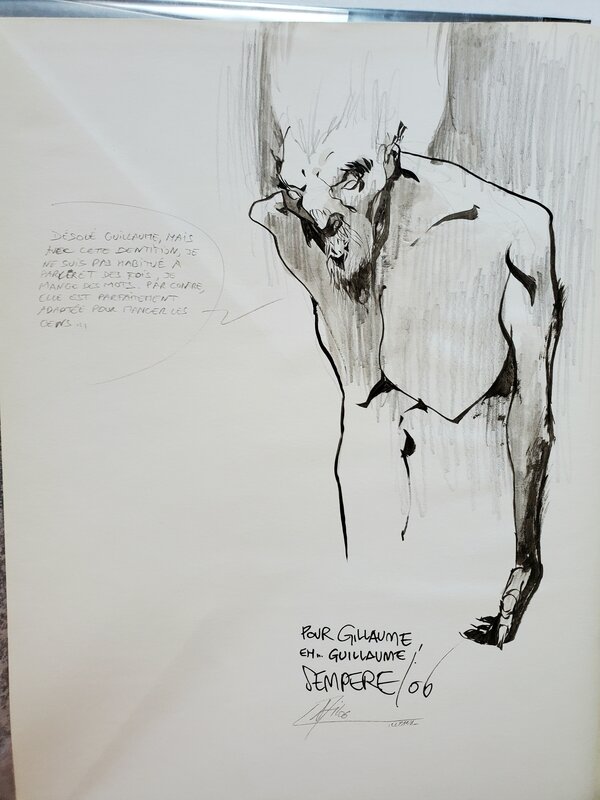 DÉSOLÉ GUILLAUME, MAIS
AVEC CETTE DENTITION, JE
NE SUIS PAS HABITUÉ À
PARLER ET DES FOIS, JE
MANGE DES MOTS. PAR CONTRE,
ELLE EST PARFAITEMENT
ADAPTÉE POUR MANGER LES
GENS...
POUR GILLAUME,
EH.. GUILLAUME!
SEMPERE/06